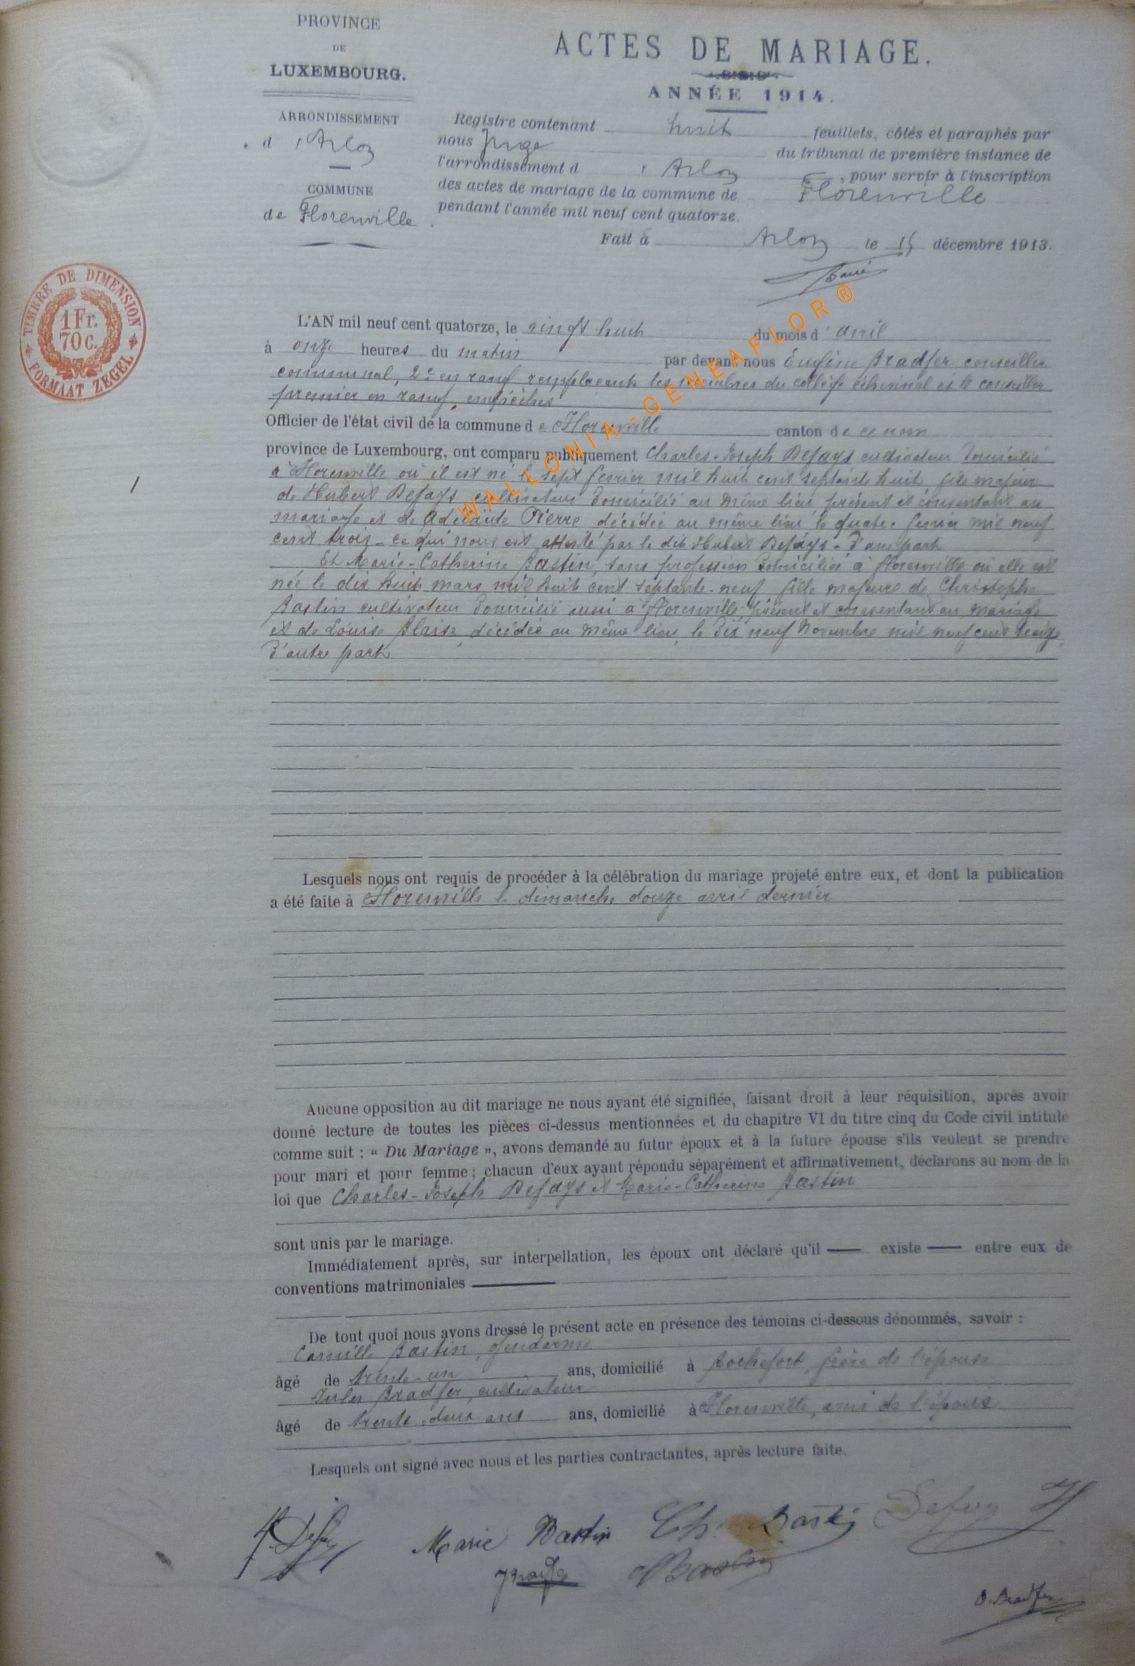 PROVINCE
DE
LUXEMBOURG.
ARRONDISSEMENT
d'Arlon
COMMUNE
de Florenville.
ACTES DE MARIAGE.
ANNÉE 1914.
Registre contenant huit feuillets, côtés et paraphés par
nous Juge du tribunal de première instance de
l'arrondissement d'Arlon, pour servir à l'inscription
des actes de mariage de la commune de Florenville
pendant l'année mil neuf cent quatorze.
Fait à Arlon le 15 décembre 1913.
TIMBRE DE DIMENSION
1 Fr.
70 C.
FORMAAT ZEGEL
WALLONIA-GENEAFLOR®
L'AN mil neuf cent quatorze, le vingt huit du mois d'avril
à onze heures du matin par devant nous Eugène Bradfer conseiller
communal, 2e en rang remplaçant les membres du collège échevinal et le conseiller
premier en rang, empêchés
Officier de l'état civil de la commune de Florenville canton de ce nom
province de Luxembourg, ont comparu publiquement Charles-Joseph Defays cultivateur domicilié
à Florenville où il est né le sept février mil huit cent septante huit, fils majeur
de Hubert Defays, cultivateur domicilié au même lieu présent et consentant au
mariage et de Adélaïde Pierre décédée au même lieu le quatre février mil neuf
cent trois - ce qui nous est attesté par le dit Hubert Defays - d'une part
Et Marie-Catherine Bastin, sans profession domiciliée à Florenville où elle est
née le dix huit mars mil huit cent septante-neuf, fille majeure de Christophe
Bastin cultivateur domicilié aussi à Florenville présent et consentant au mariage
et de Louise Blaise, décédée au même lieu, le dix neuf novembre mil neuf cent treize
d'autre part
1
Lesquels nous ont requis de procéder à la célébration du mariage projeté entre eux, et dont la publication
a été faite à Florenville le dimanche douze avril dernier
Aucune opposition au dit mariage ne nous ayant été signifiée, faisant droit à leur réquisition, après avoir
donné lecture de toutes les pièces ci-dessus mentionnées et du chapitre VI du titre cinq du Code civil intitulé
comme suit : « Du Mariage », avons demandé au futur époux et à la future épouse s'ils veulent se prendre
pour mari et pour femme ; chacun d'eux ayant répondu séparément et affirmativement, déclarons au nom de la
loi que Charles-Joseph Defays et Marie-Catherine Bastin
sont unis par le mariage.
Immédiatement après, sur interpellation, les époux ont déclaré qu'il — existe — entre eux de
conventions matrimoniales —
De tout quoi nous avons dressé le présent acte en présence des témoins ci-dessous dénommés, savoir :
Camille Bastin, gendarme
âgé de trente-un ans, domicilié à Rochefort, frère de l'épouse
Jules Bradfer, cultivateur
âgé de trente-deux ans ans, domicilié à Florenville, ami de l'épouse
Lesquels ont signé avec nous et les parties contractantes, après lecture faite.
Marie Bastin Ch. Bastin Defays H
Bastin